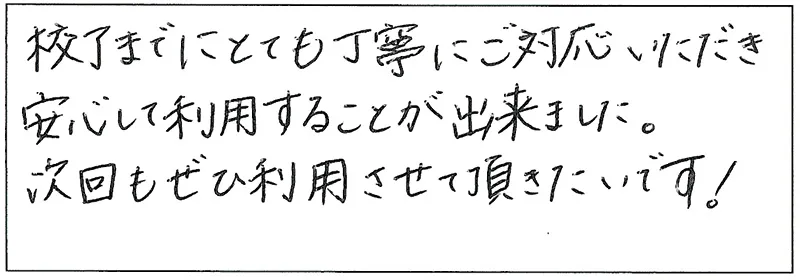 校了までにとても丁寧にご対応いただき
安心して利用することが出来ました。
次回もぜひ利用させて頂きたいです!